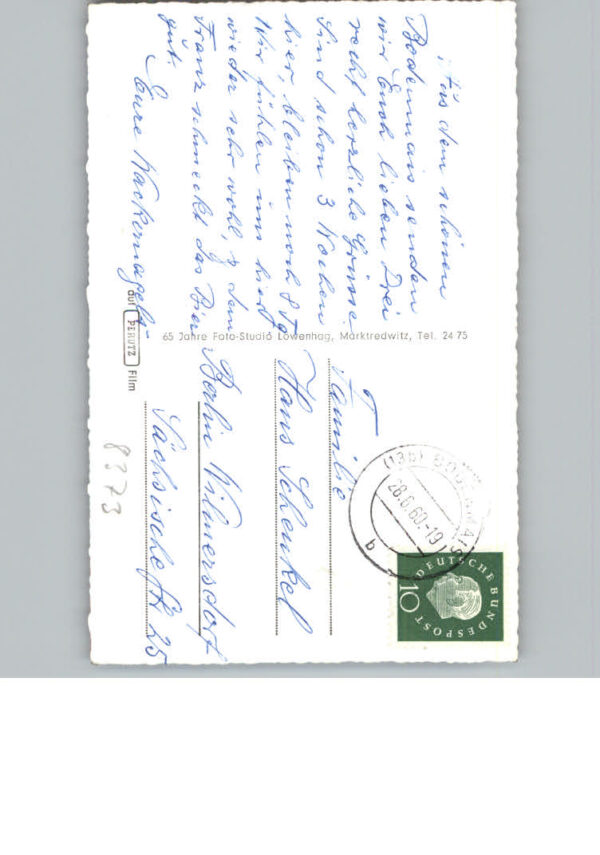 Aus dem schönen
Bodenmais senden
wir Euch lieben Drei
recht herzliche Grüsse.
Sind schon 3 Wochen
hier, bleiben noch 8 Tg
Wir fühlen uns hier
wieder sehr wohl, dem
Franz schmeckt das Bier
gut.
Eure Wackernagels
65 Jahre Foto-Studio Löwenhag, Marktredwitz, Tel. 24 75
auf PERUTZ Film
Familie
Hans Schenkel
Berlin Wilmersdorf
Sächsische Str 25
8373
(13b) BODENMAIS
28.6.60-19
b
DEUTSCHE BUNDESPOST
10